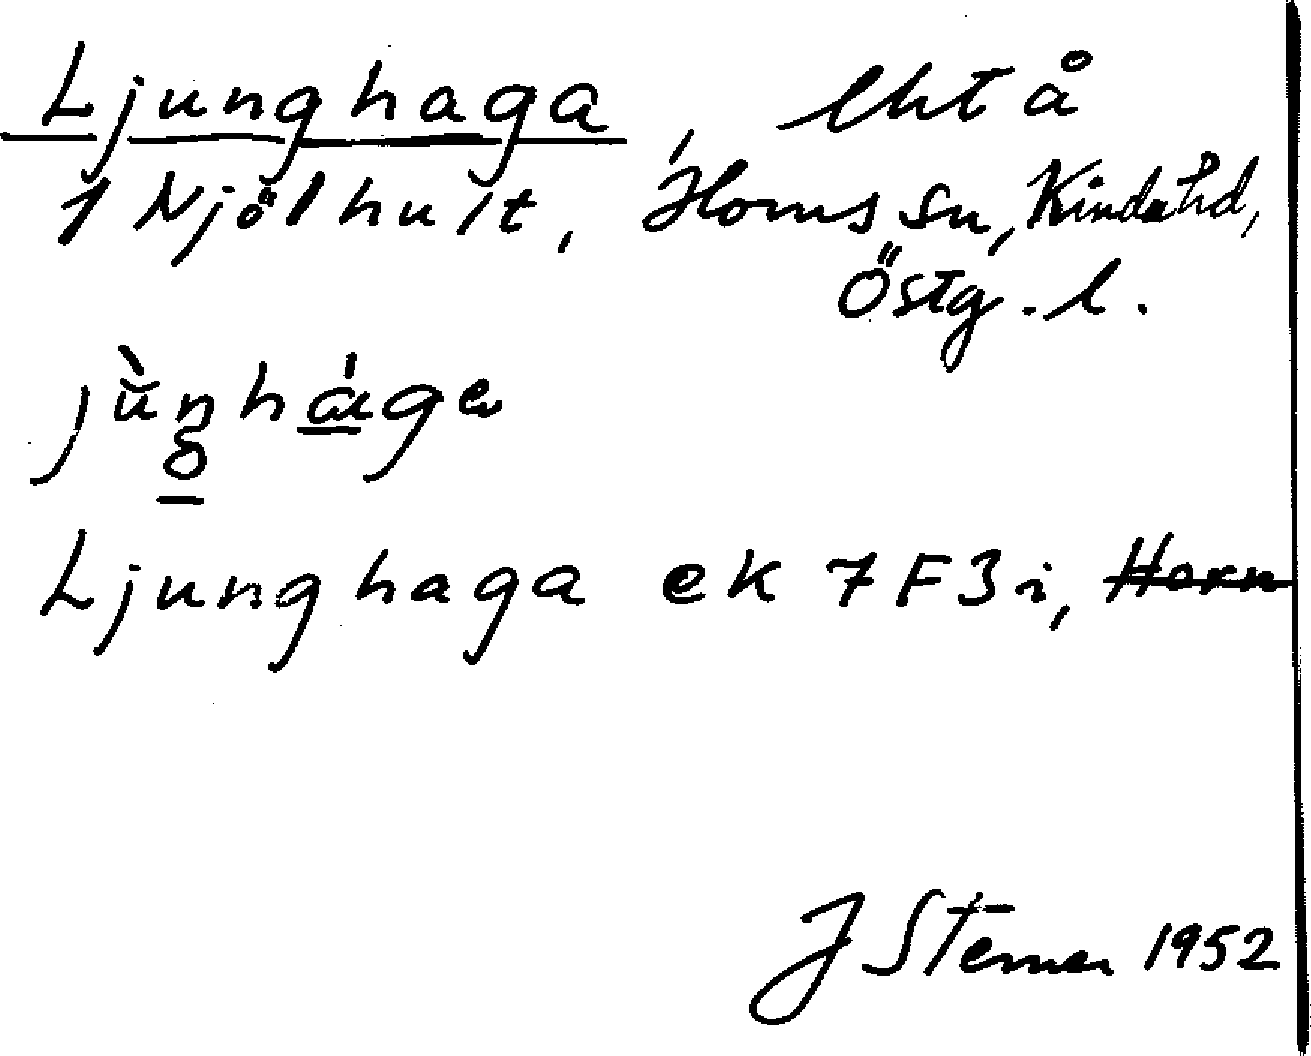 Ljunghaga, lht å
1 Njölhult, Horns sn, Kinda hd,
Östg. l.
Ljunghaga ek 7F3i, Horn
J Sterner 1952